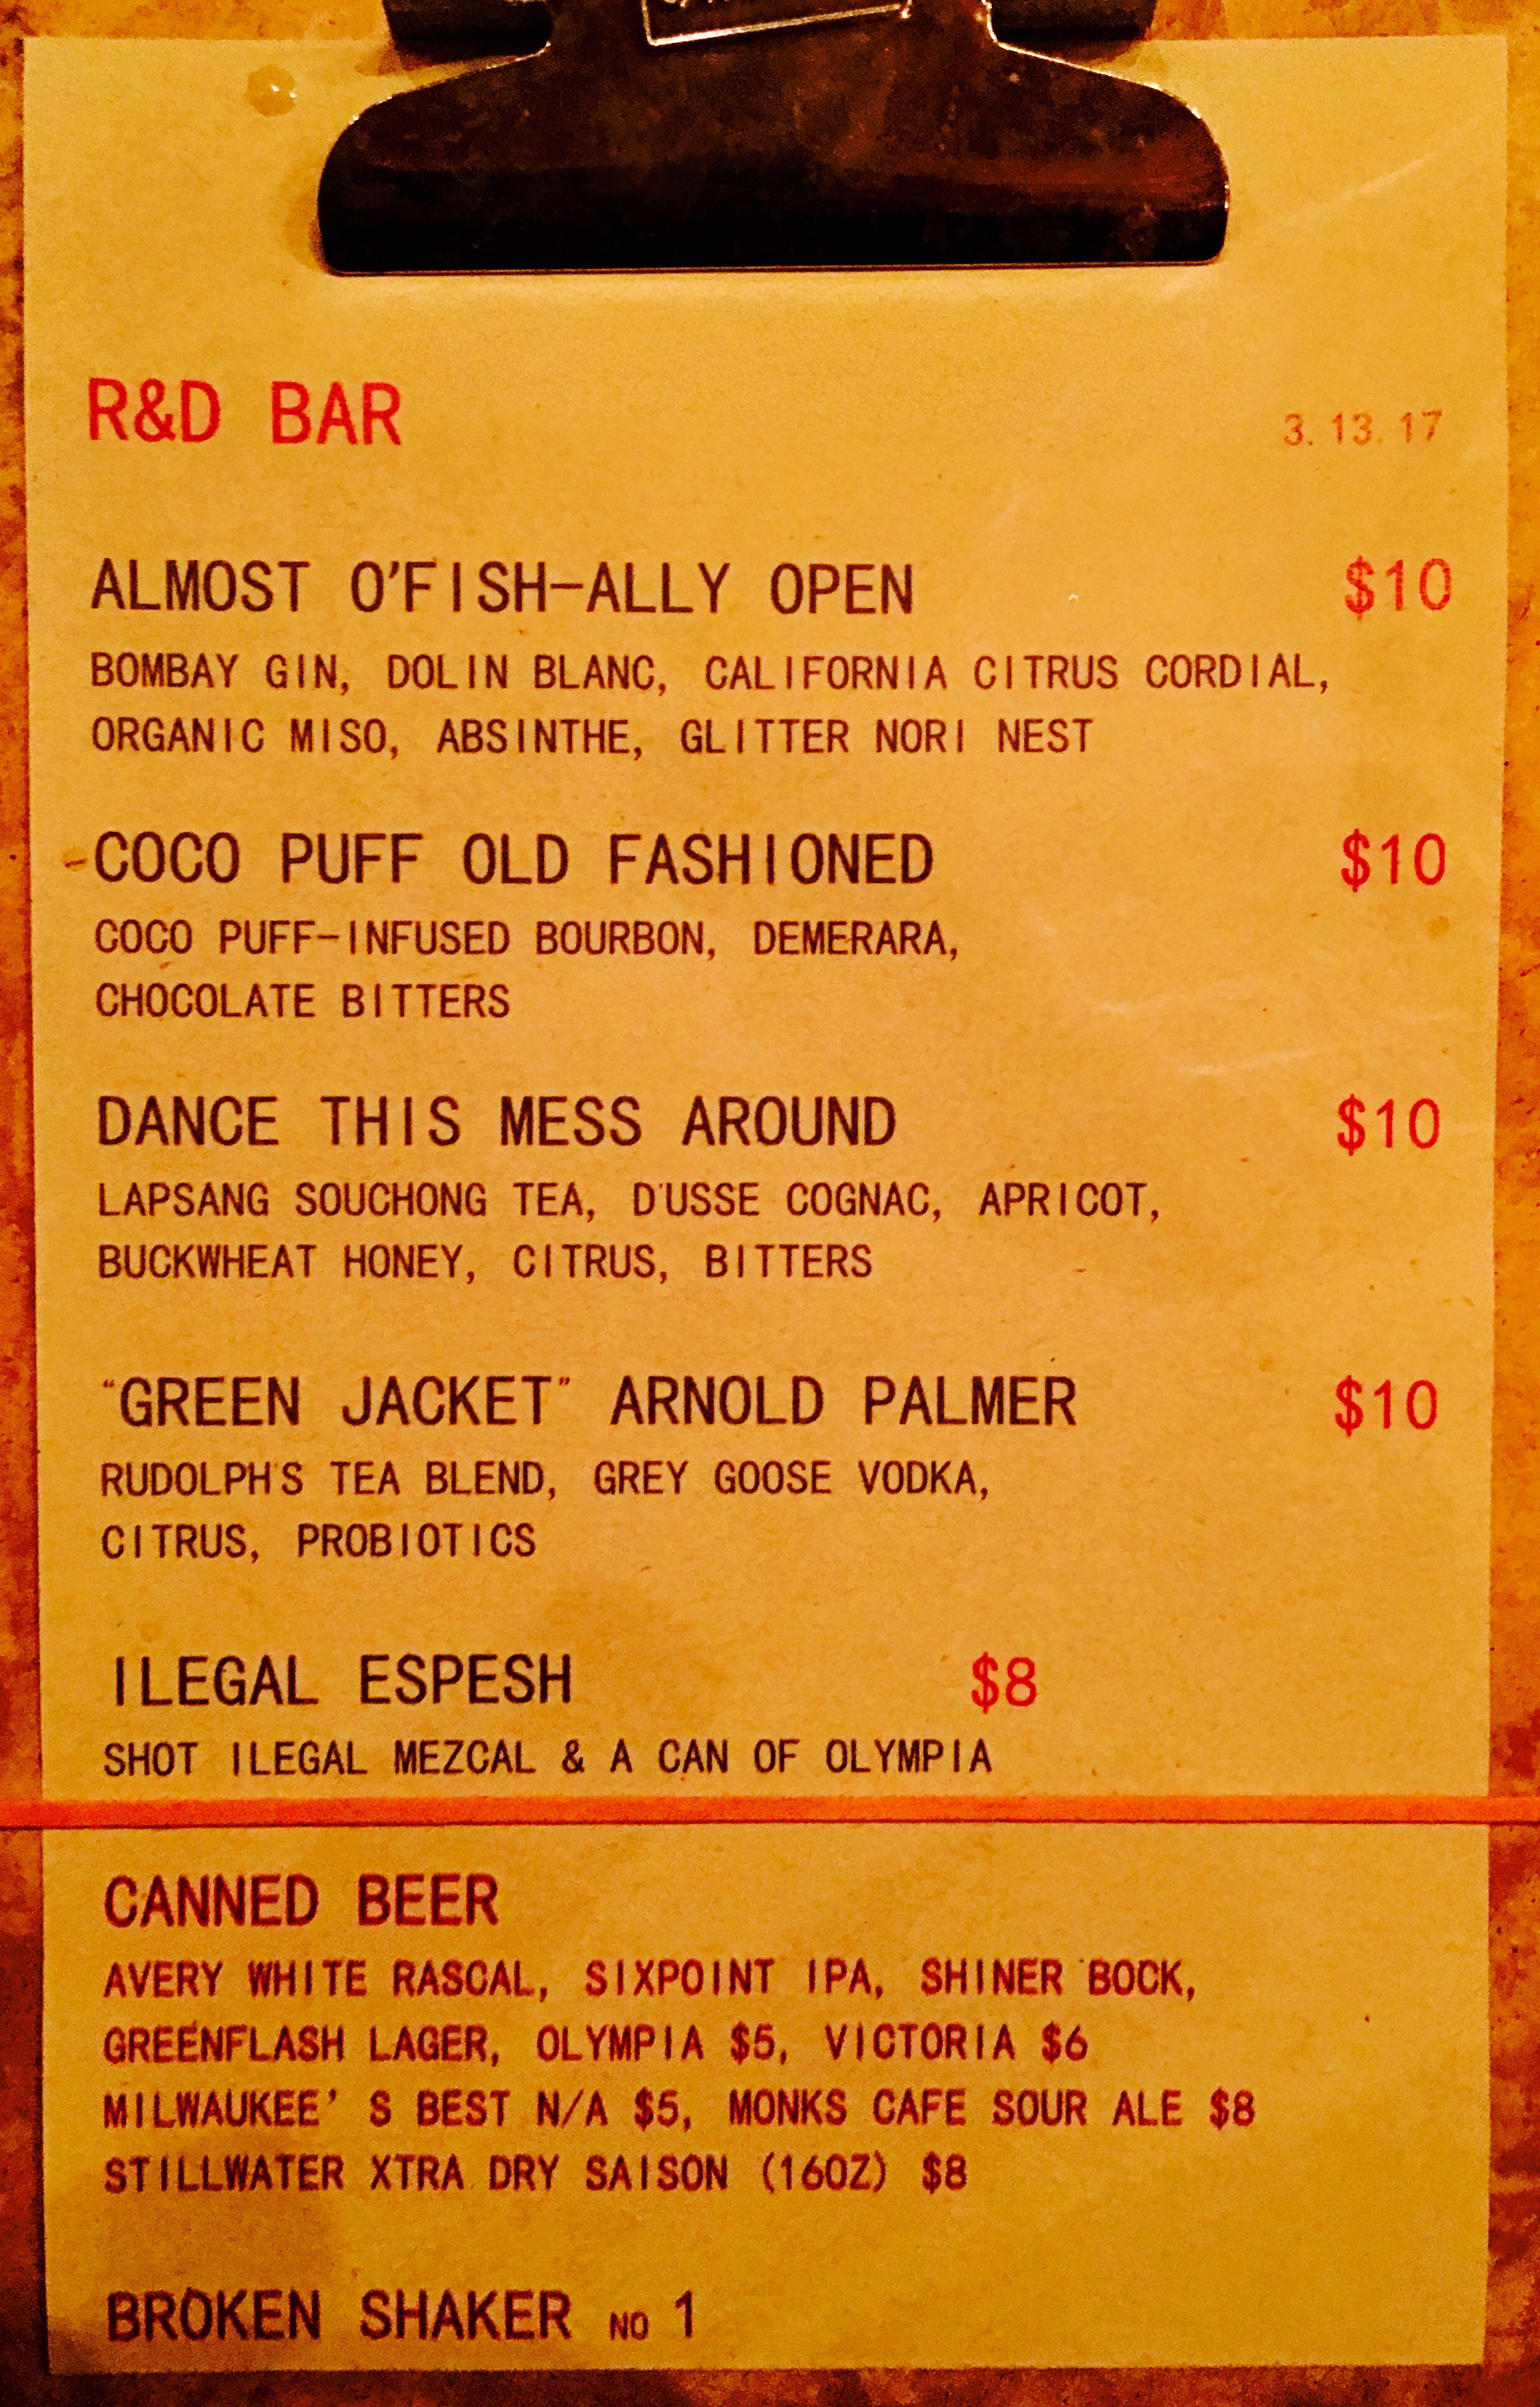 R&D BAR 3.13.17
ALMOST O'FISH-ALLY OPEN $10
BOMBAY GIN, DOLIN BLANC, CALIFORNIA CITRUS CORDIAL,
ORGANIC MISO, ABSINTHE, GLITTER NORI NEST
COCO PUFF OLD FASHIONED $10
COCO PUFF-INFUSED BOURBON, DEMERARA,
CHOCOLATE BITTERS
DANCE THIS MESS AROUND $10
LAPSANG SOUCHONG TEA, D'USSE COGNAC, APRICOT,
BUCKWHEAT HONEY, CITRUS, BITTERS
"GREEN JACKET" ARNOLD PALMER $10
RUDOLPH'S TEA BLEND, GREY GOOSE VODKA,
CITRUS, PROBIOTICS
ILEGAL ESPESH $8
SHOT ILEGAL MEZCAL & A CAN OF OLYMPIA
CANNED BEER
AVERY WHITE RASCAL, SIXPOINT IPA, SHINER BOCK,
GREENFLASH LAGER, OLYMPIA $5, VICTORIA $6
MILWAUKEE' S BEST N/A $5, MONKS CAFE SOUR ALE $8
STILLWATER XTRA DRY SAISON (16OZ) $8
BROKEN SHAKER NO 1